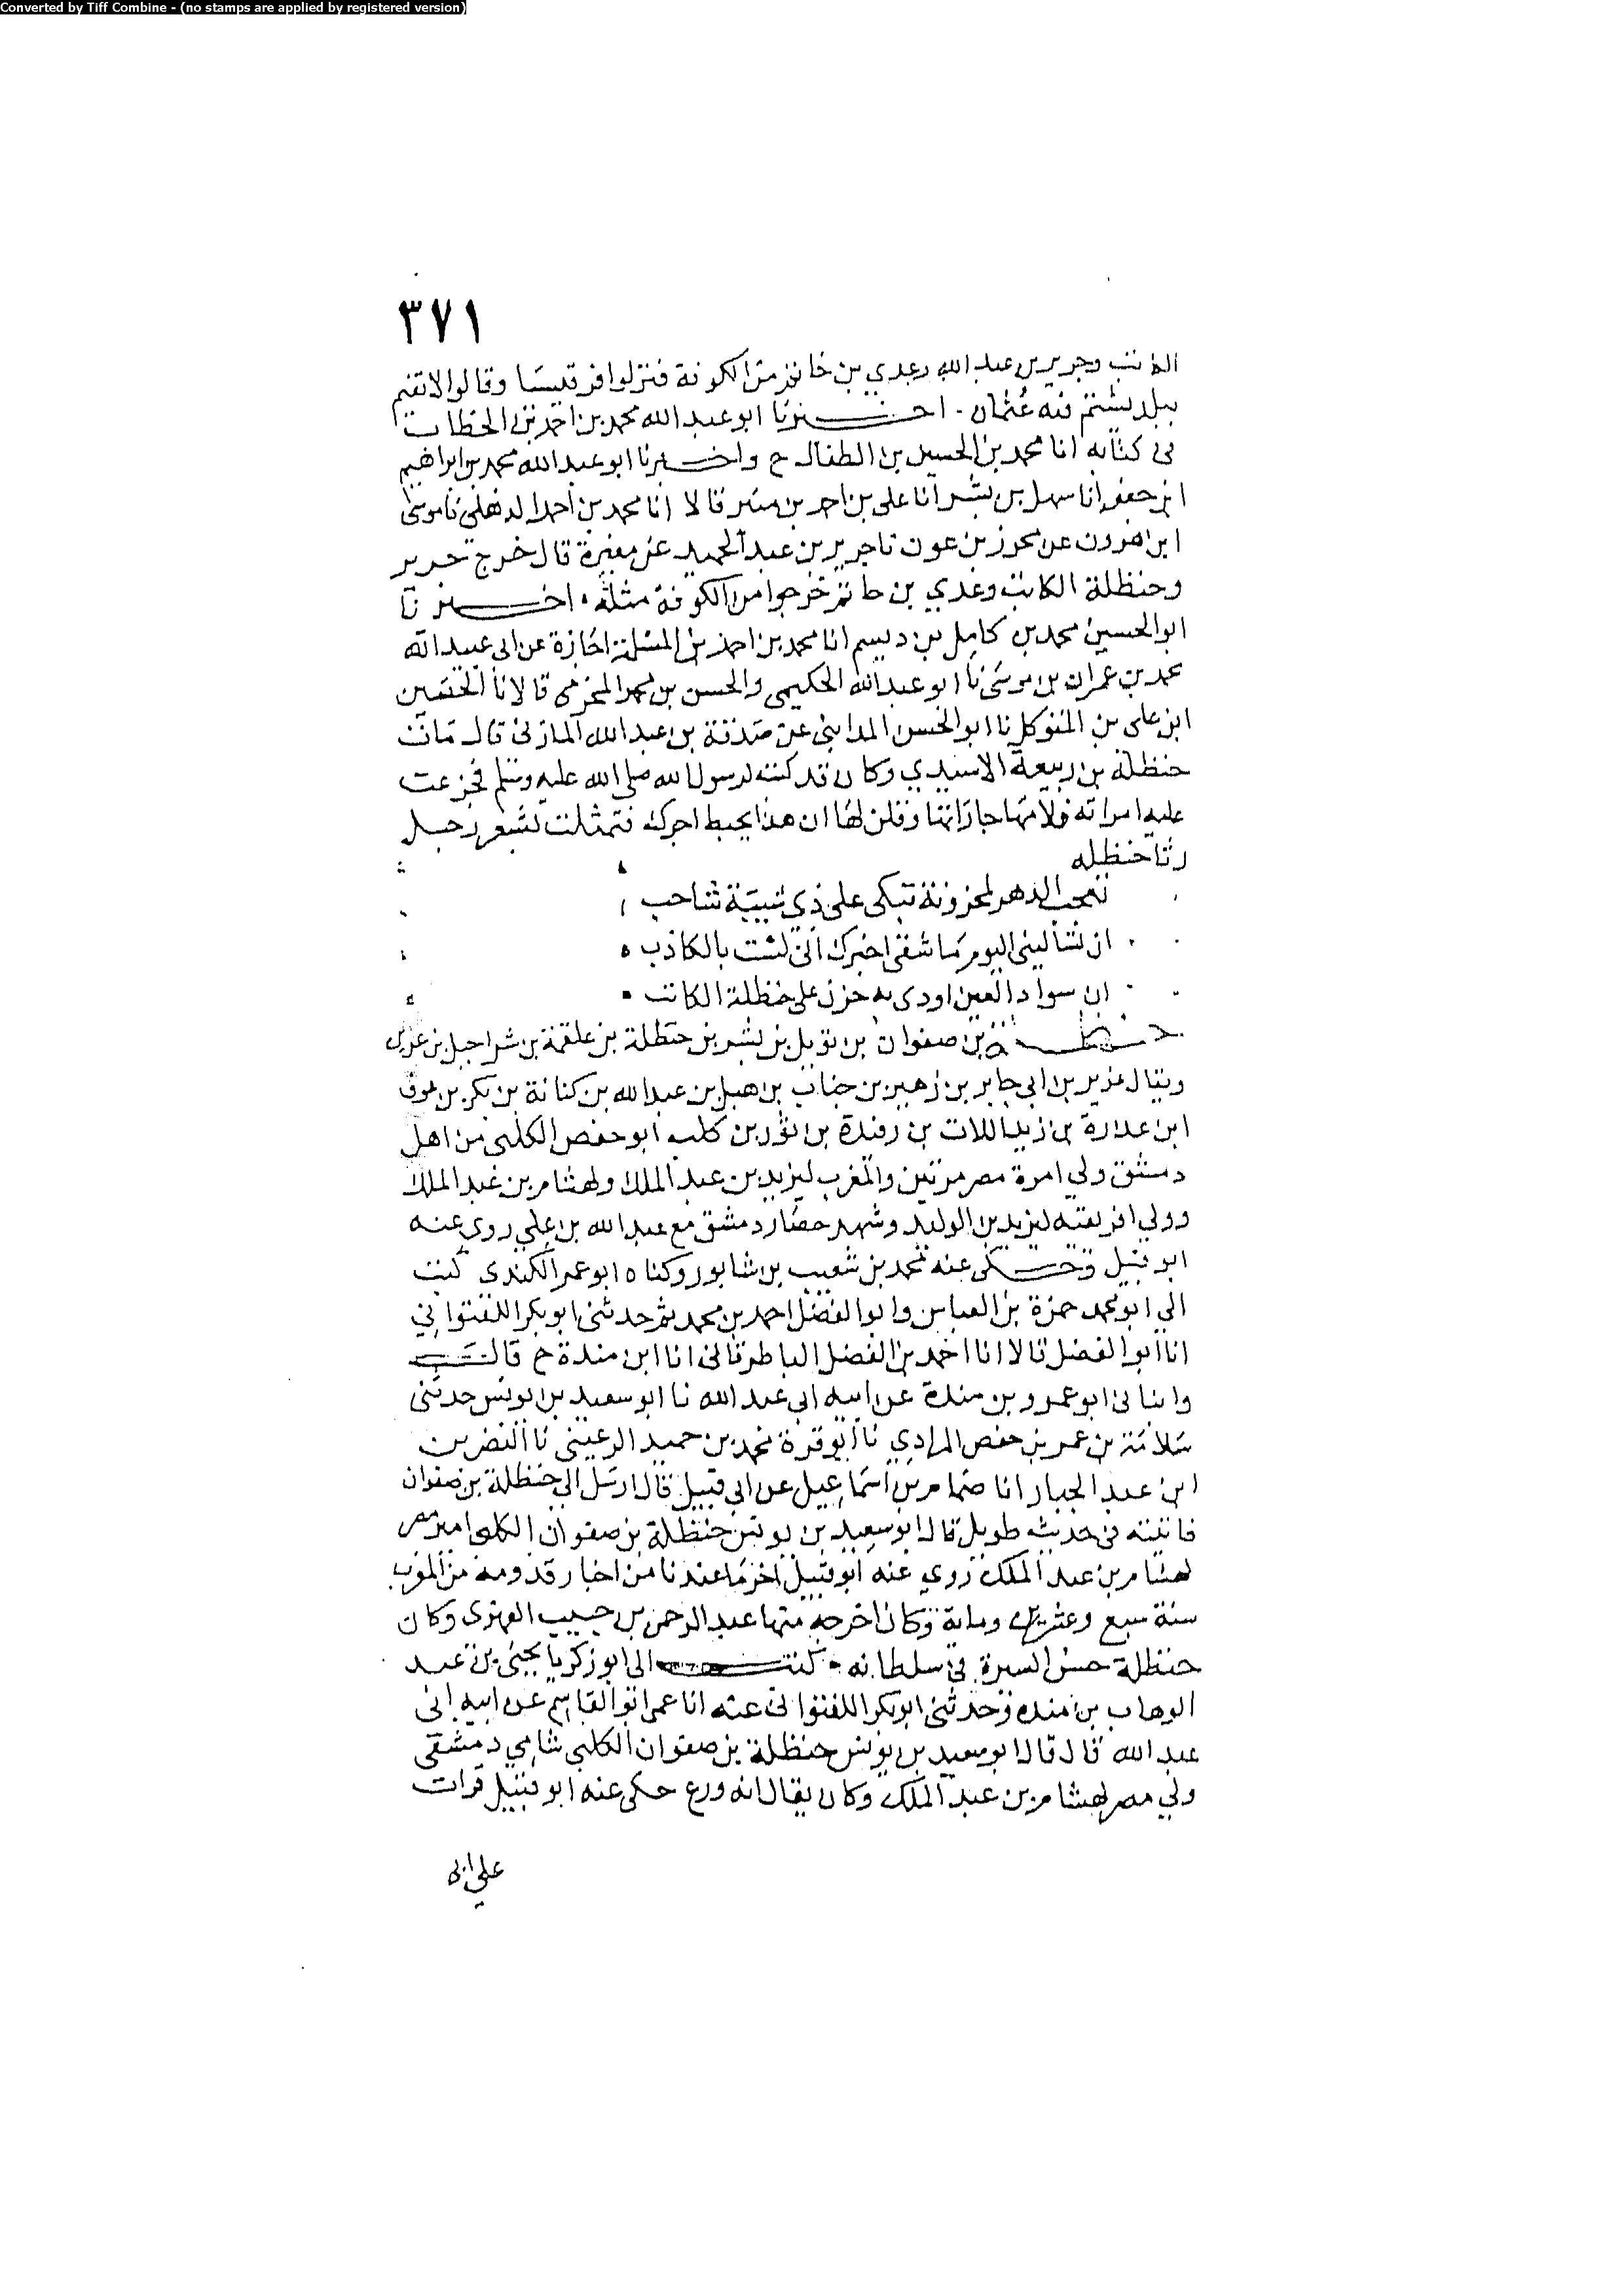 Converted by Tiff Combine - (no stamps are applied by registered version)
٣٧١
الكاتب وجرير بن عبد الله وعدي بن حاتم من الكوفة فنزلوا قرقيسا وقالوا لا نقيم
ببلد يشتم فيه عثمان . اخبرنا ابو عبد الله محمد بن احمد بن الحطاب
في كتابه انا محمد بن الحسين بن الطفال ح واخبرنا ابو عبد الله محمد بن ابراهيم
ابن جعفر انا سهل بن بشر انا علي بن احمد بن منير قالا انا محمد بن احمد الذهلي نا موسى
ابن هرون عن محرز بن عون نا جرير بن عبد الحميد عن مغيرة قال خرج جرير
وحنظلة الكاتب وعدي بن حاتم خرجوا من الكوفة مثله . اخبرنا
ابو الحسين محمد بن كامل بن ديسم انا محمد بن احمد بن المسلمة اجازة عن ابي عبيد الله
محمد بن عمران بن موسى نا ابو عبد الله الحكيمي والحسن بن محمد المخرمي قالا نا الحسين
ابن علي بن المتوكل نا ابو الحسن المدايني عن صدقة بن عبد الله المازني قال مات
حنظلة بن ربيعة الاسيدي وكان قد كتب لرسول الله صلى الله عليه وسلم فجزعت
عليه امراته فلامتها جاراتها وقلن لها ان هذا يحبط اجرك فتمثلت بشعر رجل
رثا حنظله
تعجب الدهر لمحزونة تبكي على ذي شيبة شاحب
ان تساليني اليوم ما شفني اخبرك اني لست بالكاذب
ان سواد العين اودى به حزن على حنظلة الكاتب
حنظلة بن صفوان بن تويل بن بشر بن حنظلة بن علقمة بن شراحيل بن عزيز
ويقال عزير بن ابي جابر بن زهير بن جناب بن هبل بن عبد الله بن كنانة بن بكر بن عوف
ابن عذرة بن زيد اللات بن رفيدة بن ثور بن كلب ابو حفص الكلبي من اهل
دمشق ولي امرة مصر مرتين والمغرب ليزيد بن عبد الملك ولهشام بن عبد الملك
وولي افريقية ليزيد بن الوليد وشهد حصار دمشق مع عبد الله بن علي روى عنه
ابو قبيل وحكى عنه محمد بن شعيب بن شابور وكناه ابو عمر الكندي كتب
الي ابو محمد حمزة بن العباس وابو الفضل احمد بن محمد ثم حدثني ابو بكر اللفتواني
انا ابو الفضل قالا انا احمد بن الفضل الباطرقاني انا ابن مندة ح قال
وانباني ابو عمرو بن مندة عن ابيه ابي عبد الله نا ابو سعيد بن يونس حدثني
سلامة بن عمر بن حفص المرادي نا ابو قرة محمد بن حميد الرعيني نا النضر بن
ابن عبد الجبار انا ضمام بن اسماعيل عن ابي قبيل قال ارسل الي حنظلة بن صفوان
فاتيته في حديث طويل قال ابو سعيد بن يونس حنظلة بن صفوان الكلبي امير مصر
لهشام بن عبد الملك روى عنه ابو قبيل اخر ما عندنا من اخبار قدومه من المغرب
سنة سبع وعشرين وماية وكان اخرجه منها عبد الرحمن بن حبيب الفهري وكان
حنظلة حسن السيرة في سلطانه . كتب الي ابو زكريا يحيى بن عبد
الوهاب بن منده وحدثني ابو بكر اللفتواني عنه انا عمي ابو القاسم عن ابيه ابي
عبد الله قال قال ابو سعيد بن يونس حنظلة بن صفوان الكلبي شامي دمشقي
ولي مصر لهشام بن عبد الملك وكان يقال انه ورع حكى عنه ابو قبيل قرات
على ابي